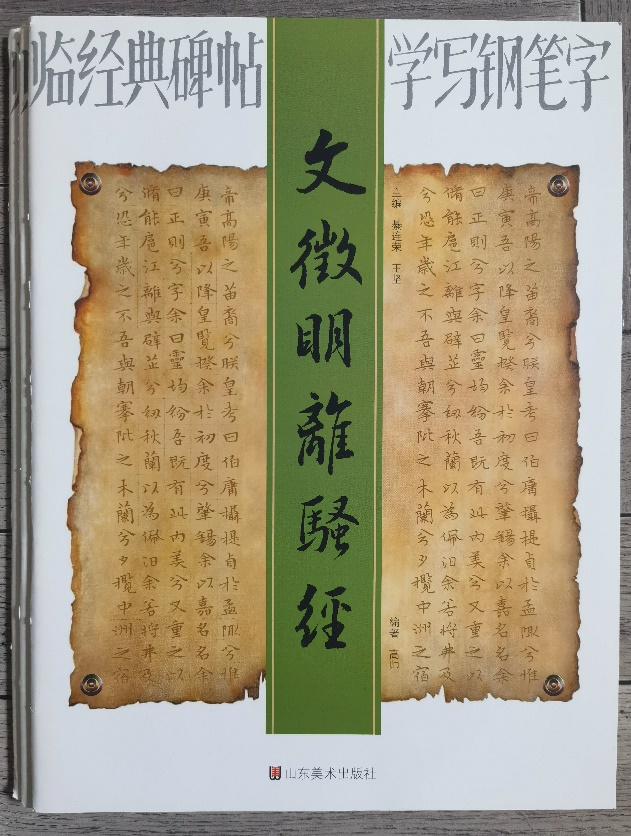 临经典碑帖
学写钢笔字
文徵明離騷經
主编 綦连荣 王坚
编者
帝高陽之苗裔兮朕皇考曰伯庸攝提貞於孟陬兮惟
庚寅吾以降皇覽揆余於初度兮肇錫余以嘉名名余
曰正則兮字余曰靈均紛吾既有此内美兮又重之以
脩能扈江離與辟芷兮紉秋蘭以為佩汨余若將弗及
兮恐年歲之不吾與朝搴阰之木蘭兮夕攬中洲之宿
帝高陽之苗裔兮朕皇考曰伯庸攝提貞於孟陬兮惟
庚寅吾以降皇覽揆余於初度兮肇錫余以嘉名名余
曰正則兮字余曰靈均紛吾既有此内美兮又重之以
脩能扈江離與辟芷兮紉秋蘭以為佩汨余若將弗及
兮恐年歲之不吾與朝搴阰之木蘭兮夕攬中洲之宿
山东美术出版社